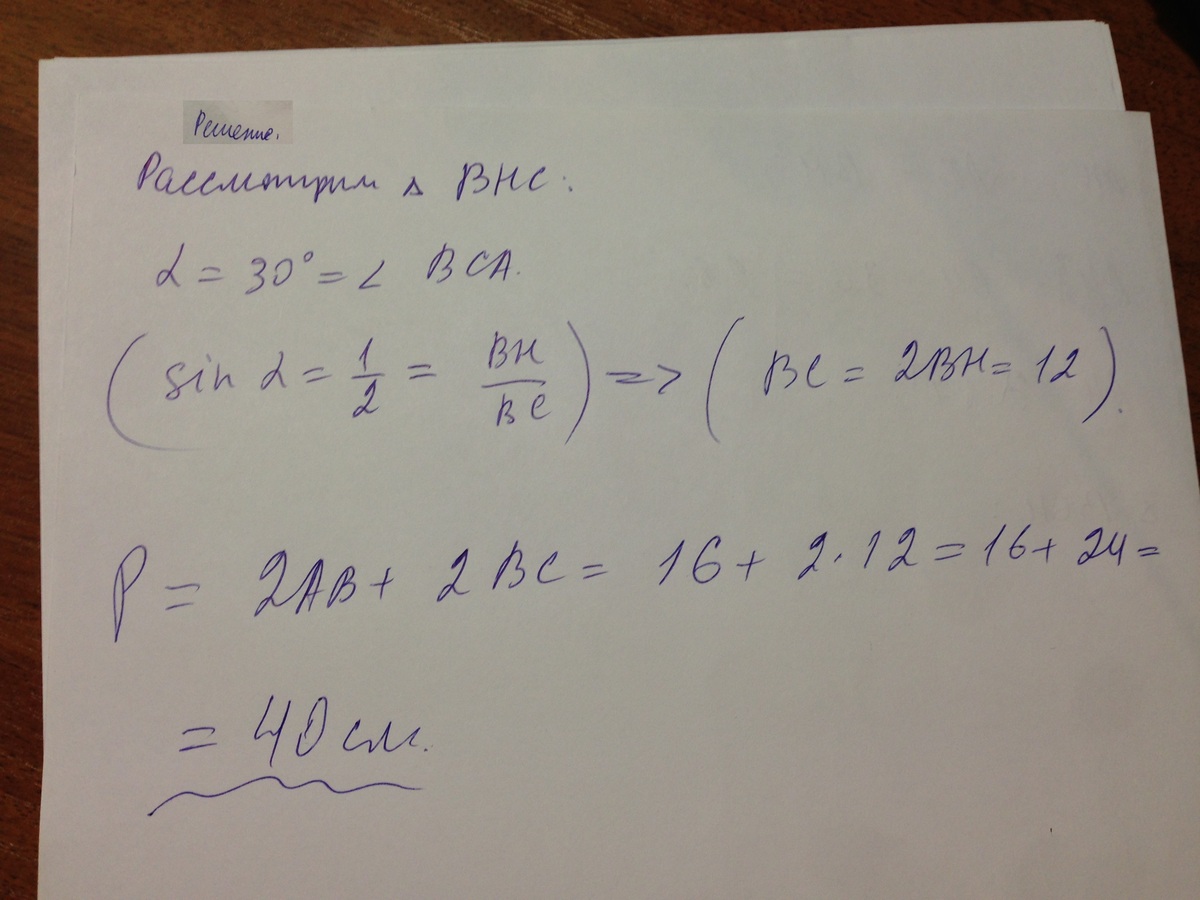 Решение.
Рассмотрим Δ BHC:
α = 30° = ∠ BCA.
(sin α = 1/2 = BH/BC) => (BC = 2BH = 12).
P = 2AB + 2BC = 16 + 2·12 = 16 + 24 =
= 40 см.